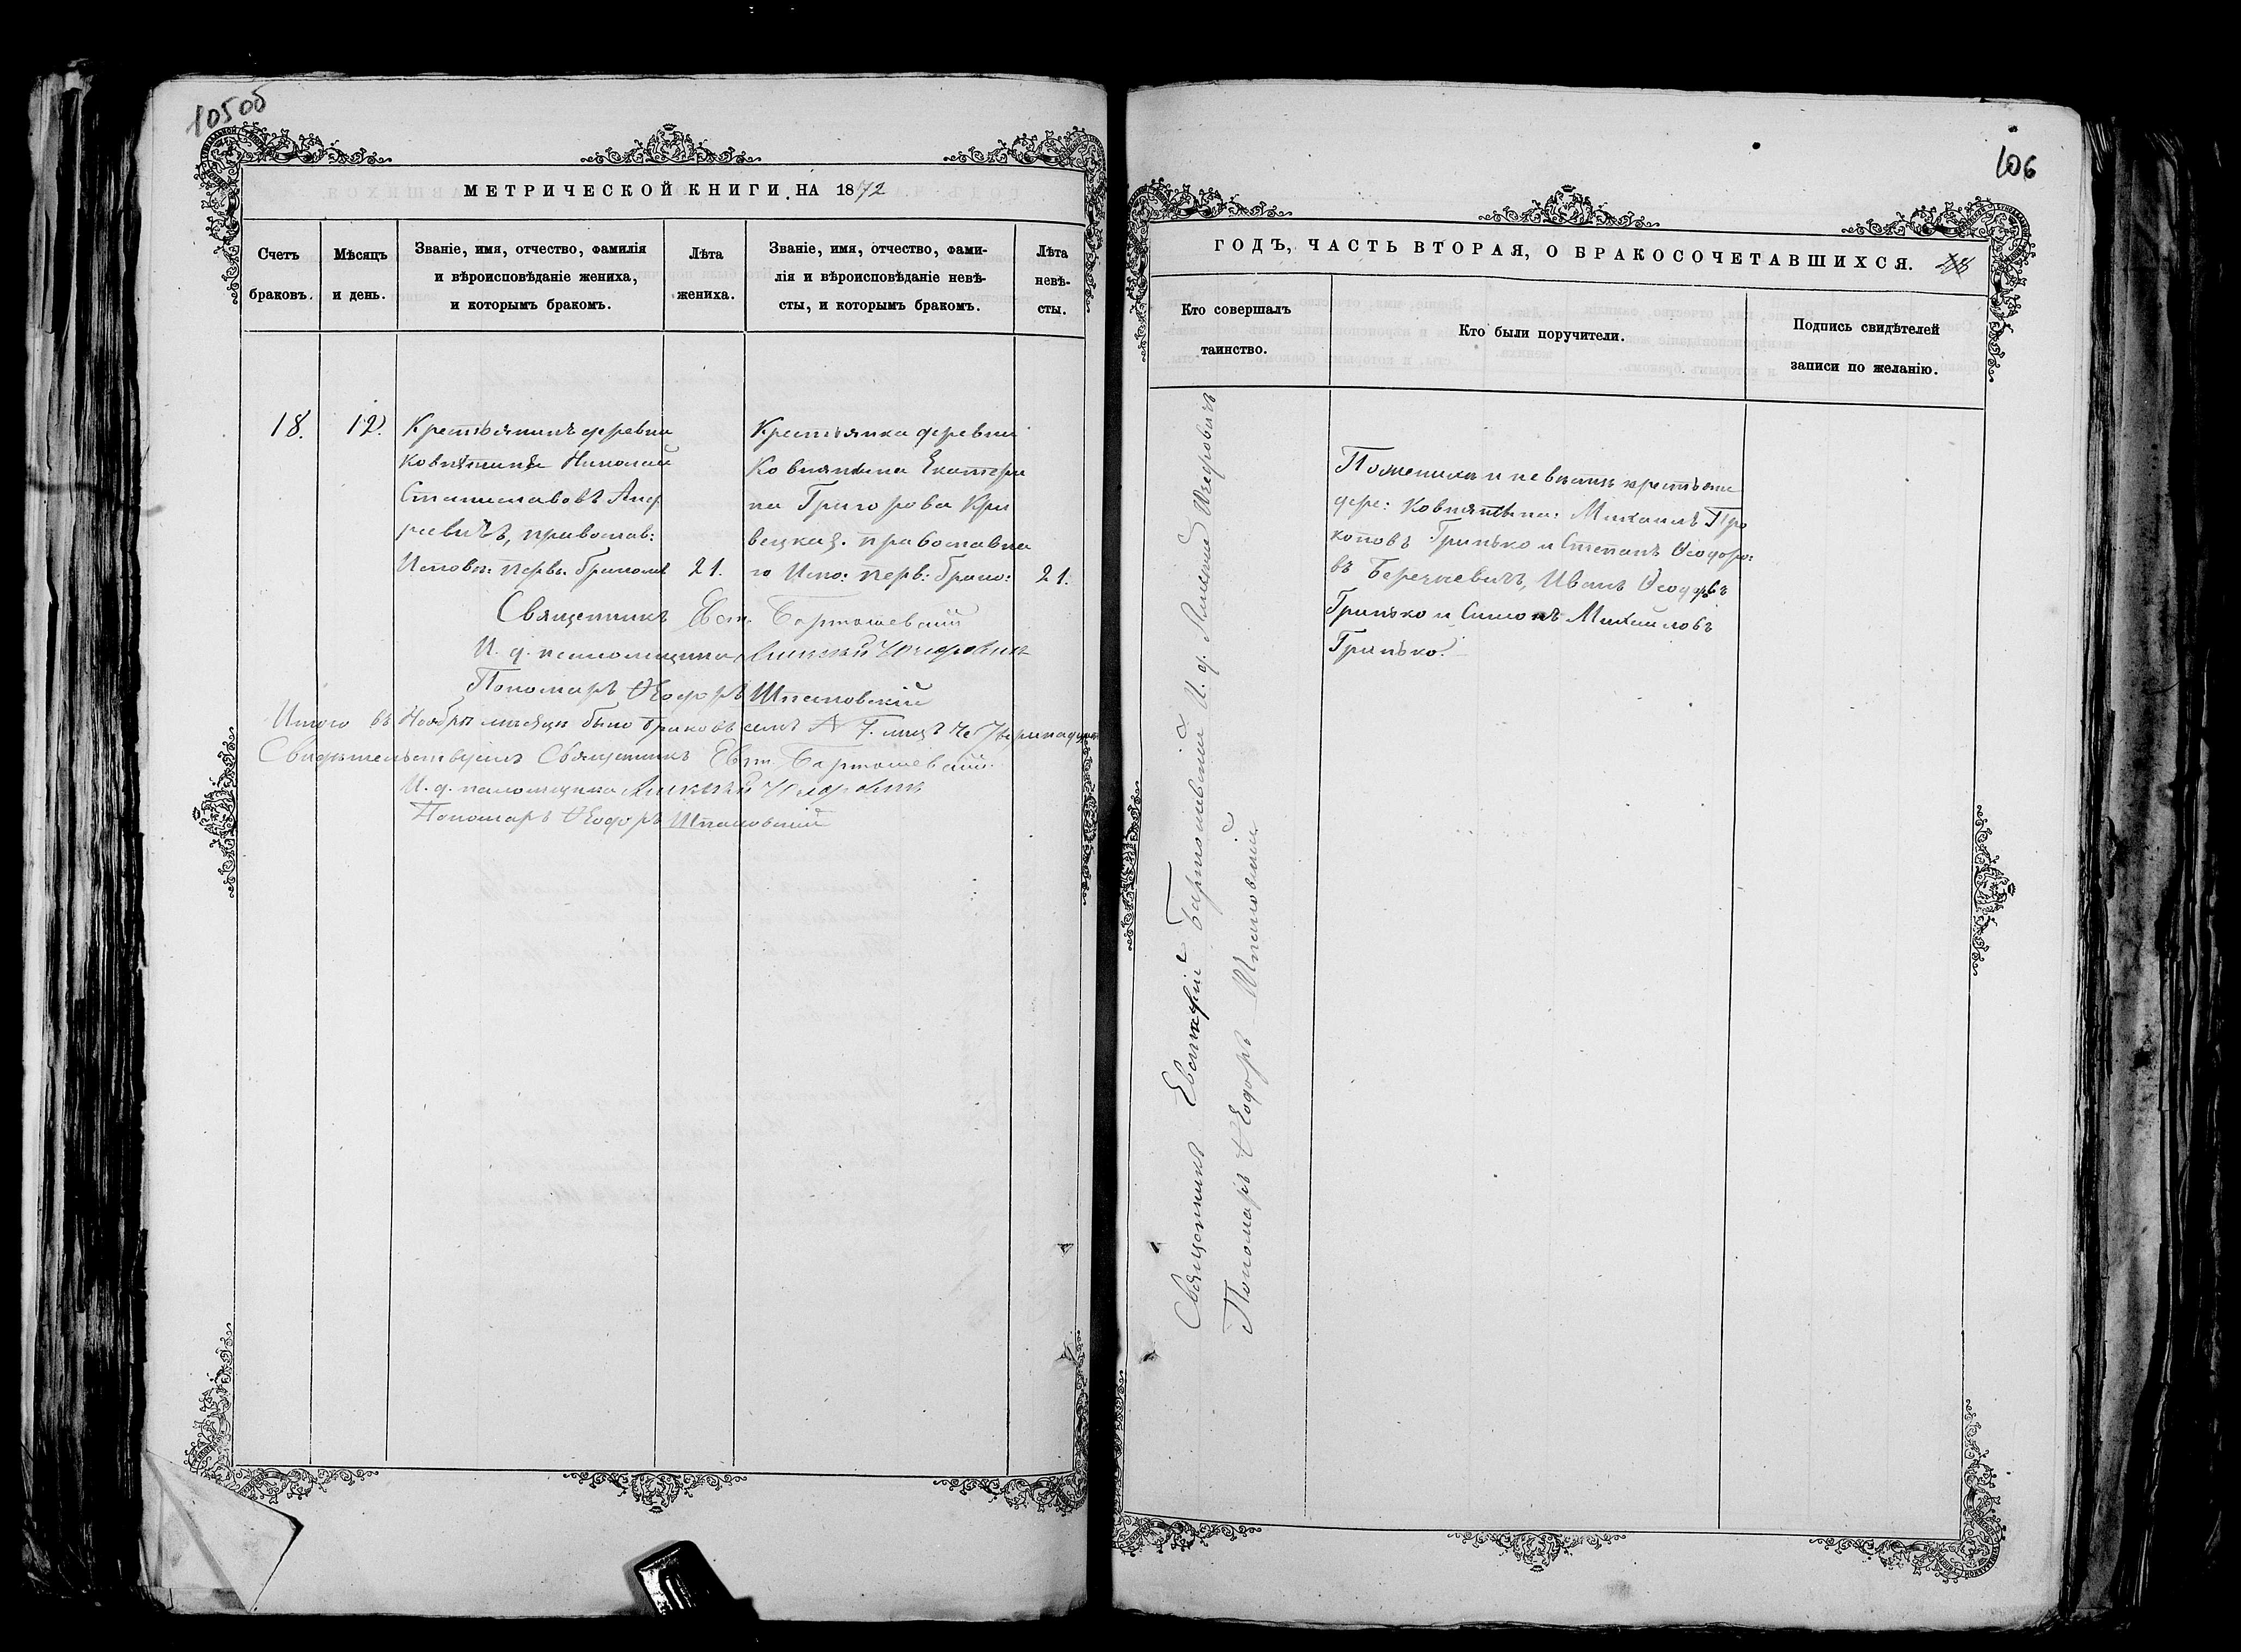 105об
МЕТРИЧЕСКОЙ КНИГИ НА 1872
Счетъ браковъ.
Мѣсяцъ и день.
Званіе, имя, отчество, фамилія
и вѣроисповѣданіе жениха,
и которымъ бракомъ.
Лѣта жениха.
Званіе, имя, отчество, фами-
лія и вѣроисповѣданіе невѣ-
сты, и которымъ бракомъ.
Лѣта невѣ-
сты.
18.
12.
Крестьянинъ деревни
Ковнятина Николай
Станиславовъ Анд
реевичъ, православ:
Исповѣ: первы: бракомъ
21.
Крестьянка деревни
Ковнятина Екатери
на Григорова Кри
вецкая. православна
го Испо: перв: брако:
21.
Священникъ Евст. Бартошевскій
И. д. псаломщика Алексѣй
Пономарь Ѳеодоръ Шпаковскій
Итого въ Ноябрѣ мѣсяцѣ было браковъ семь № 7. лицъ четырнадцать
Свидѣтельствуемъ Священникъ Евст. Бартошевскій.
И. д. псаломщика Алексѣй
Пономарь Ѳеодоръ Шпаковскій
106
ГОДЪ, ЧАСТЬ ВТОРАЯ, О БРАКОСОЧЕТАВШИХСЯ.
Кто совершалъ
таинство.
Кто были поручители.
Подпись свидѣтелей
записи по желанію.
Священникъ Евстафій Бартошевскій И. д.
Пономарь Ѳеодоръ Шпаковскій
По женихѣ и невѣстѣ крестьяне
дере: Ковнятина: Михаилъ Про
коповъ Гринько и Степанъ Ѳеодоро:
въ Беречкевичъ, Иванъ Ѳеодоровъ
Гринько и Симонъ Михайловъ
Гринько.